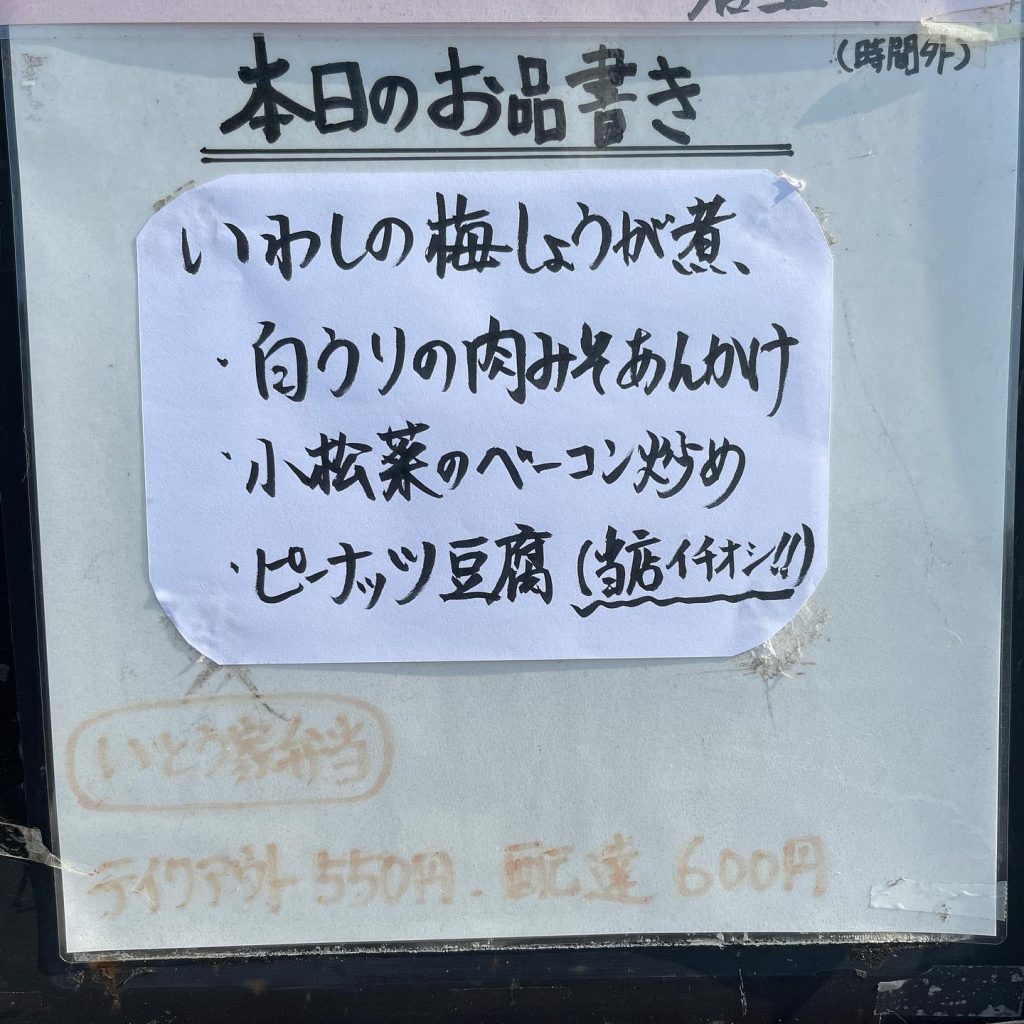 (時間外)
本日のお品書き
いわしの梅しょうが煮、
・白ウリの肉みそあんかけ
・小松菜のベーコン炒め
・ピーナッツ豆腐(当店イチオシ!!)
いとう家弁当
テイクアウト 550円、配達 600円